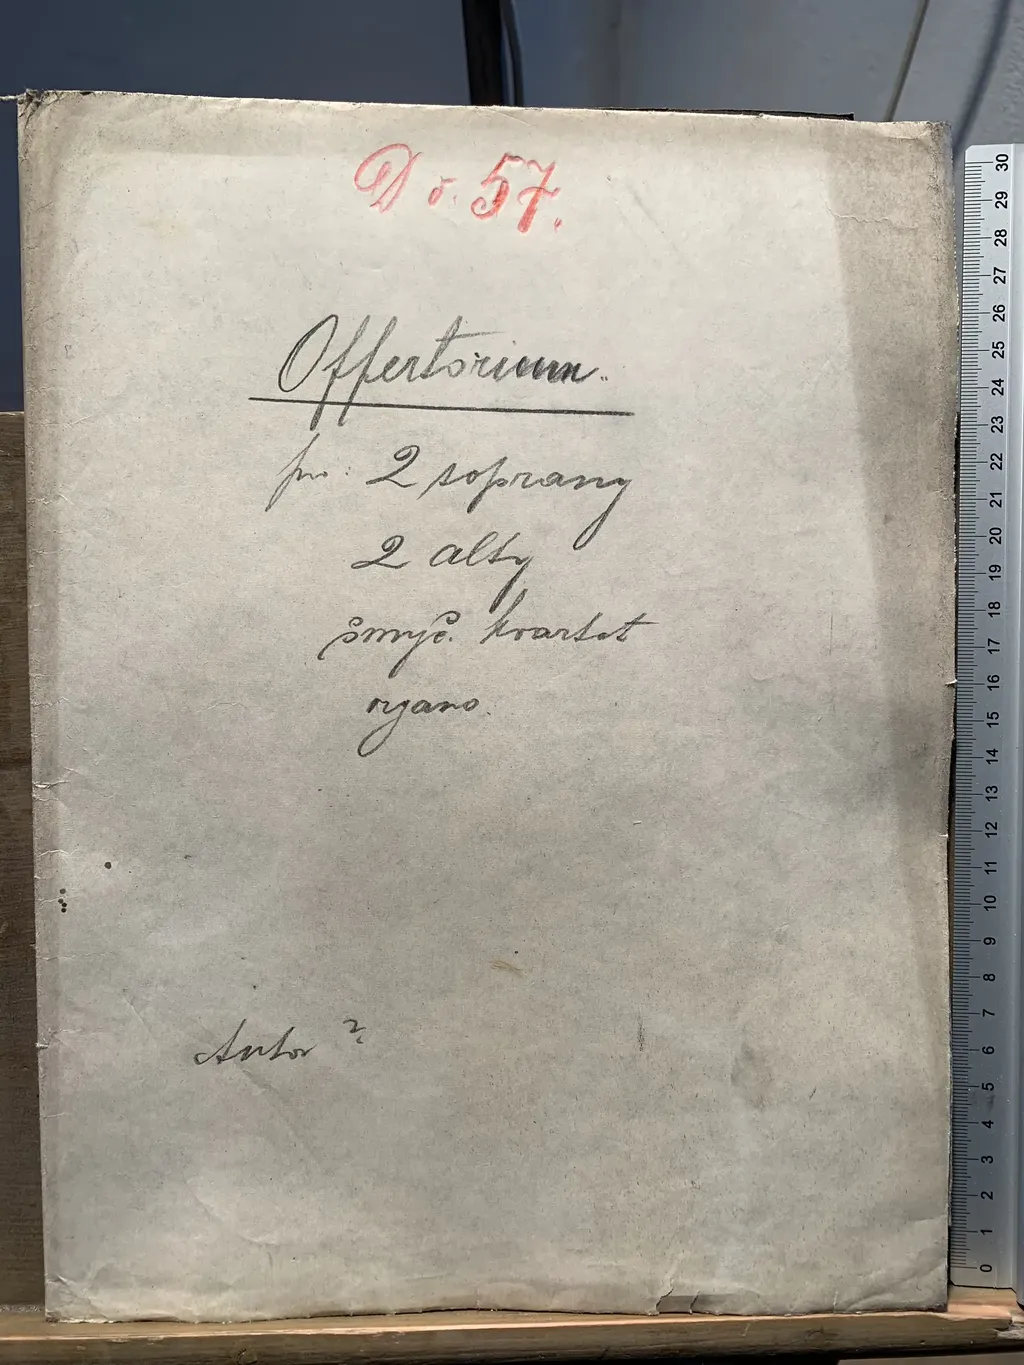 D č. 57.
Offertorium.
pro: 2 soprany
2 alty
smyč. kvartet
organo.
Autor ?
30
29
28
27
26
25
24
23
22
21
20
19
18
17
16
15
14
13
12
11
10
9
8
7
6
5
4
3
2
1
0